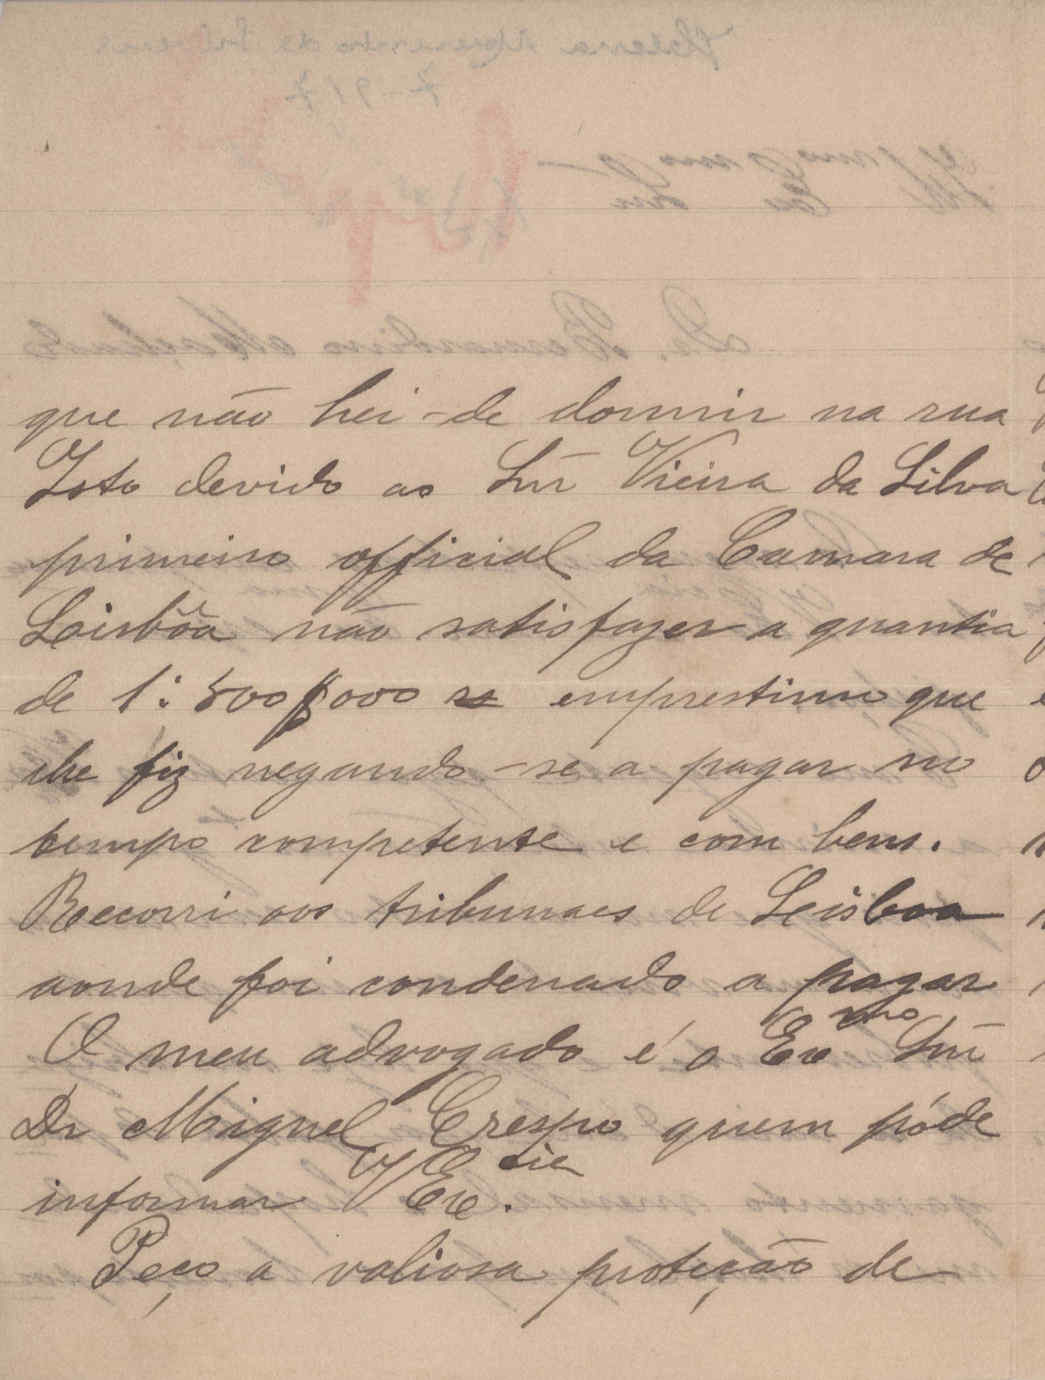 que não hei-de dormir na rua
Isto devido ao Snr Vieira da Silva
primeiro official da Camara de
Leisbôa não satisfazer a quantia
de 1:500$000 emprestimo que
lhe fiz negando-se a pagar no
tempo competente e com bens.
Recorri aos tribunaes de Leisboa
aonde foi condenado a pagar
O meu advogado é o Exmo Snr
Dr Miguel Crespo quem póde
informar V Excia.
Peço a valiosa proteção de